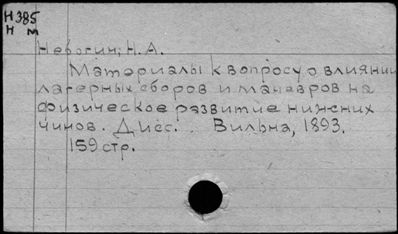 Н 385
Н м
Неводин, Н.А.
Материалы к вопросу о влиянии
лагерных сборов и маневров на
физическое развитие нижних
чинов. Дисс. Вильна, 1893.
159 стр.